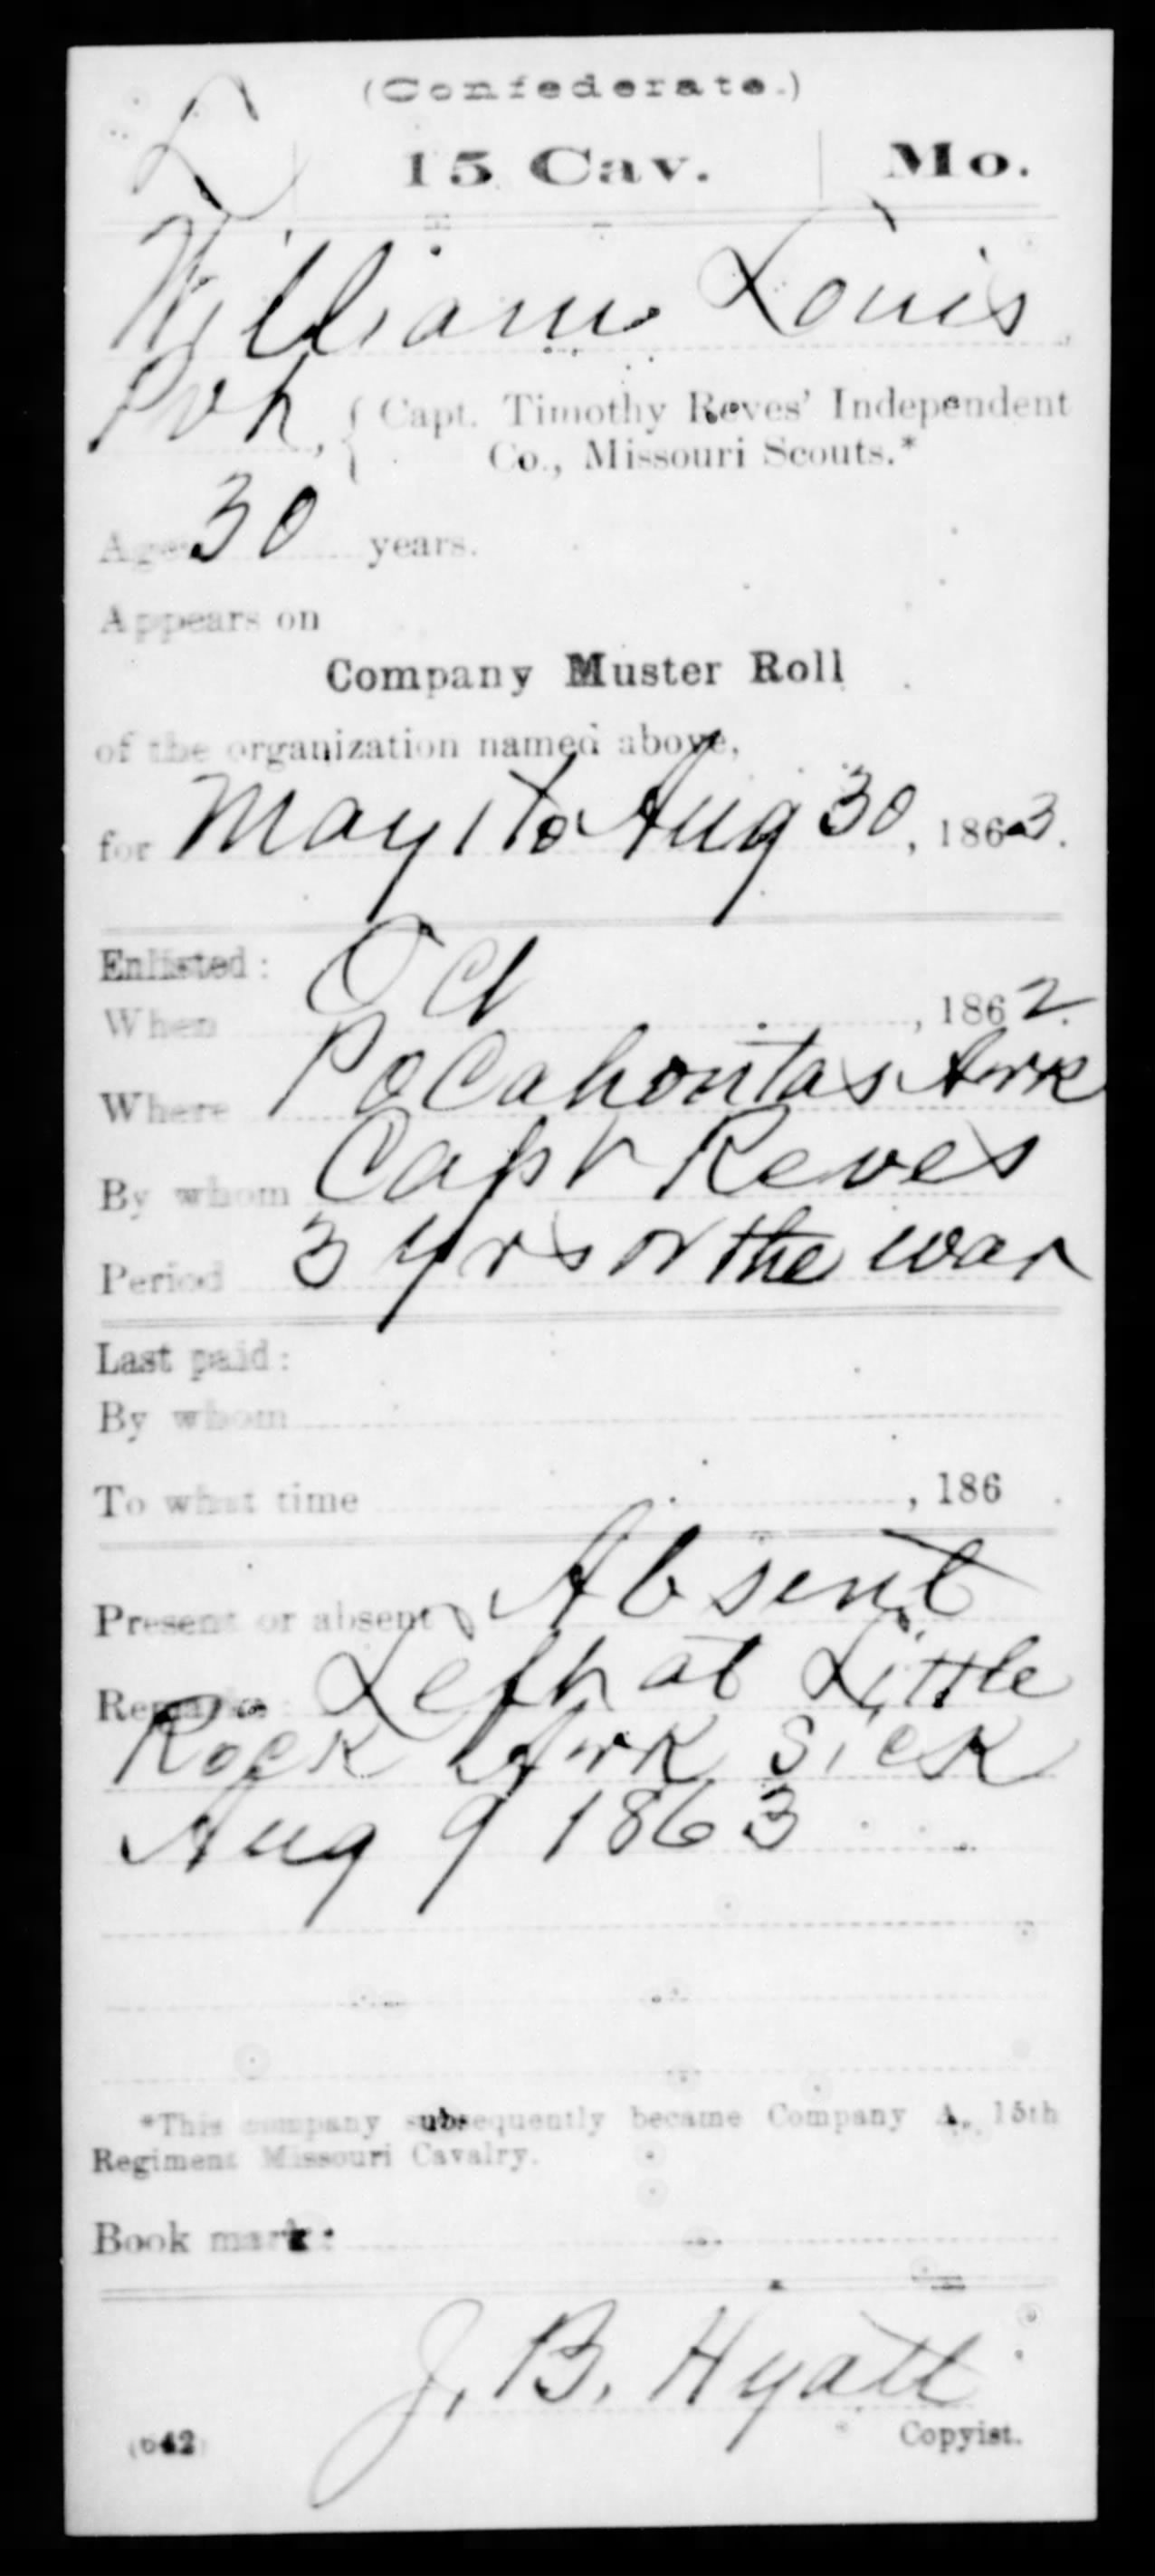 (Confederate.)
L 15 Cav. Mo.
William Louis
Pvt, { Capt. Timothy Reves' Independent
Co., Missouri Scouts.*
Age 30 years.
Appears on
Company Muster Roll
of the organization named above,
for May 1 to Aug 30, 1863.
Enlisted:
When Oct, 1862.
Where Pocahontas Ark
By whom Capt Reves
Period 3 yrs or the war
Last paid:
By whom
To what time , 186 .
Present or absent Absent
Remarks: Left at Little
Rock Ark Sick
Aug 9 1863
*This company subsequently became Company A, 15th
Regiment Missouri Cavalry.
Book mark:
J. B. Hyatt
(642) Copyist.